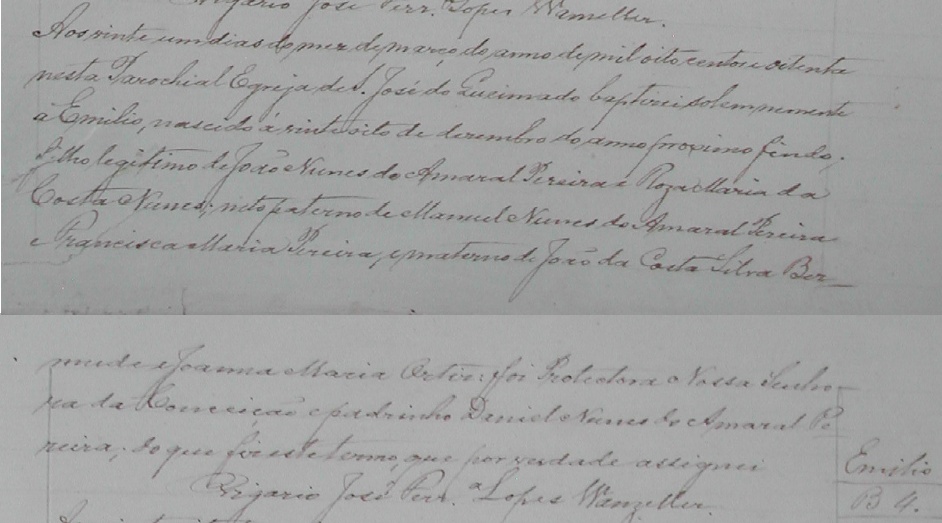 Vigario José Ferr. Lopes Wanzeller.
Aos vinte um dias do mez de março do anno de mil oito centos e oitenta
nesta Parochial Egreja de S. José do Queimado baptizei solemnemente
a Emilio, nascido á vinte oito de dezembro do anno proximo findo,
filho legitimo de João Nunes do Amaral Pereira e Roza Maria da
Costa Nunes; neto paterno de Manuel Nunes do Amaral Pereira
e Francisca Maria Pereira, e materno de João da Costa Silva Ber-
mude e Joanna Maria Ortiz: foi Protectora a Nossa Senho-
ra da Conceição e padrinho Daniel Nunes do Amaral Pe
reira; do que fiz este termo, que por verdade assignei
Vigario José Ferr.ª Lopes Wanzeller.
Emilio
B 4.